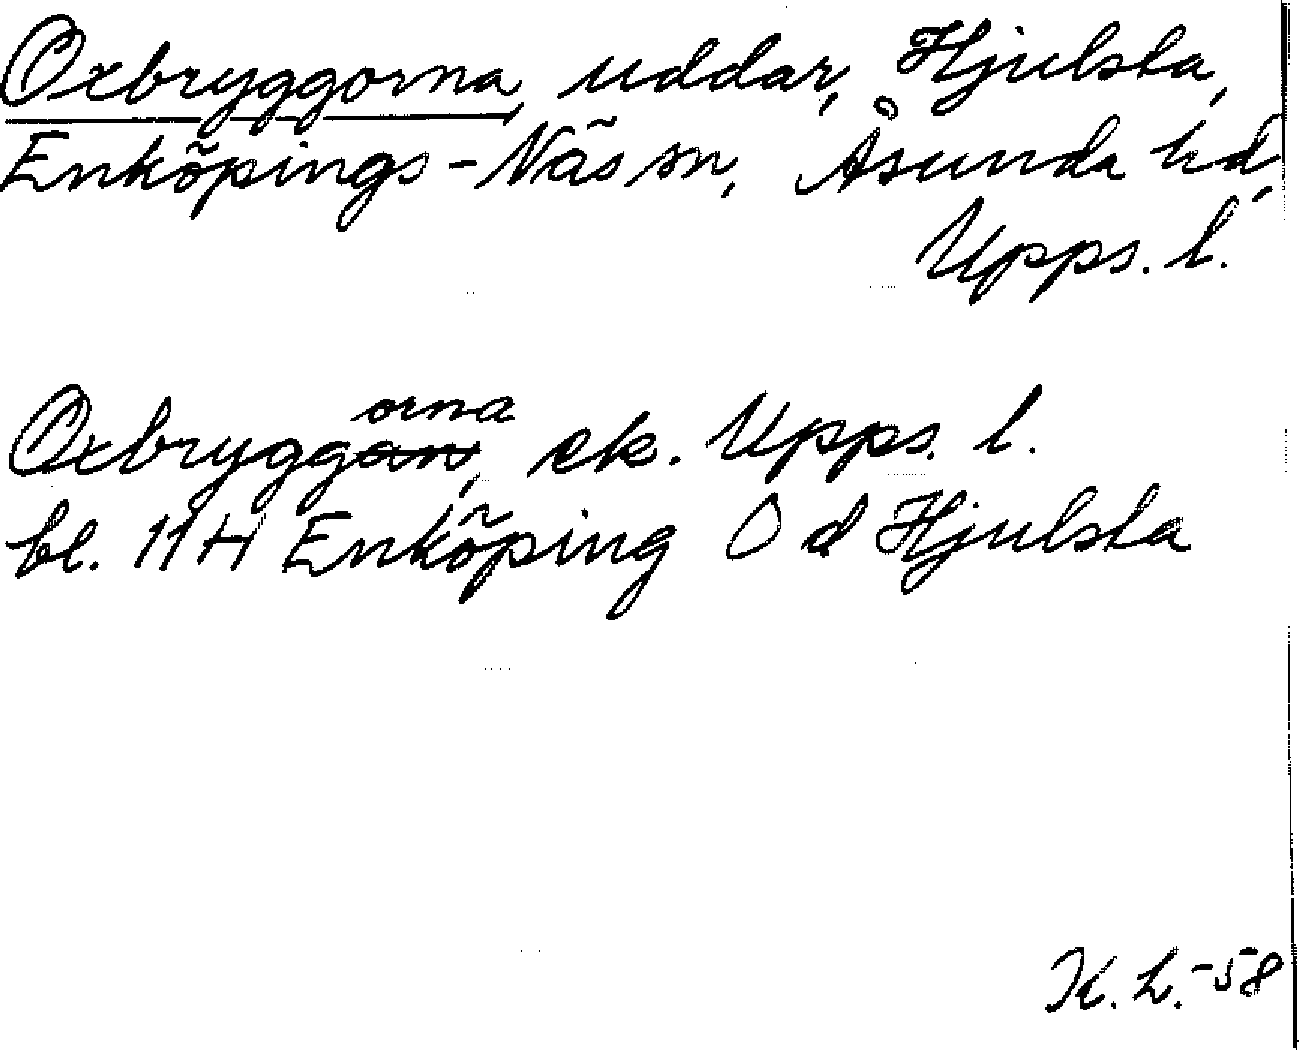 Oxbryggorna, uddar, Hjulsta,
Enköpings-Näs sn, Åsunda hd,
Upps. l.
orna
Oxbryggan, ek. Upps. l.
bl. 11 H Enköping O d Hjulsta
K. L. -58